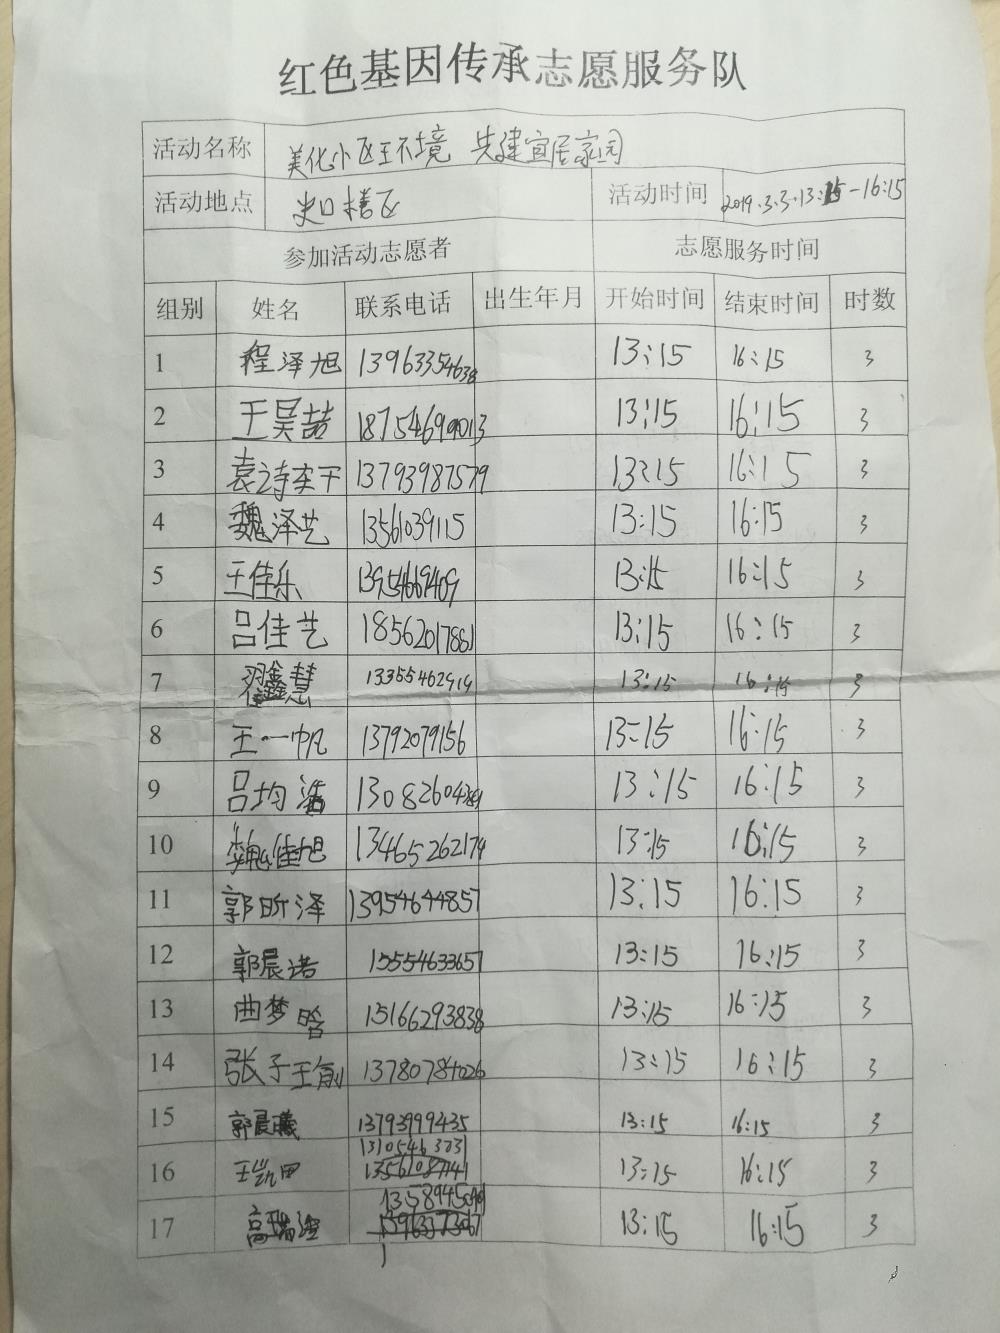 红色基因传承志愿服务队
活动名称 美化小区王不境 共建宜居家园
活动地点 史口楼区 活动时间 2019.3.3.13:15-16:15
参加活动志愿者 志愿服务时间
组别 姓名 联系电话 出生年月 开始时间 结束时间 时数
1 程泽旭 13963354638 13:15 16:15 3
2 王昊喆 13:15 16:15 3
3 13793987579 13:15 16:15 3
4 魏泽艺 13561039115 13:15 16:15 3
5 王佳乐 13954669409 13:15 16:15 3
6 吕佳艺 18562017881 13:15 16:15 3
7 翟鑫慧 13355462919 13:15 16:15 3
8 王一帆 13792079156 13:15 16:15 3
9 吕均浩 13:15 16:15 3
10 魏佳旭 13465262179 13:15 16:15 3
11 郭昕泽 13954644857 13:15 16:15 3
12 郭晨诺 15554633657 13:15 16:15 3
13 曲梦晗 15166293838 13:15 16:15 3
14 张子王俞 13780784026 13:15 16:15 3
15 郭晨曦 13793999435 13:15 16:15 3
16 王凯甲 13:15 16:15 3
17 13:15 16:15 3